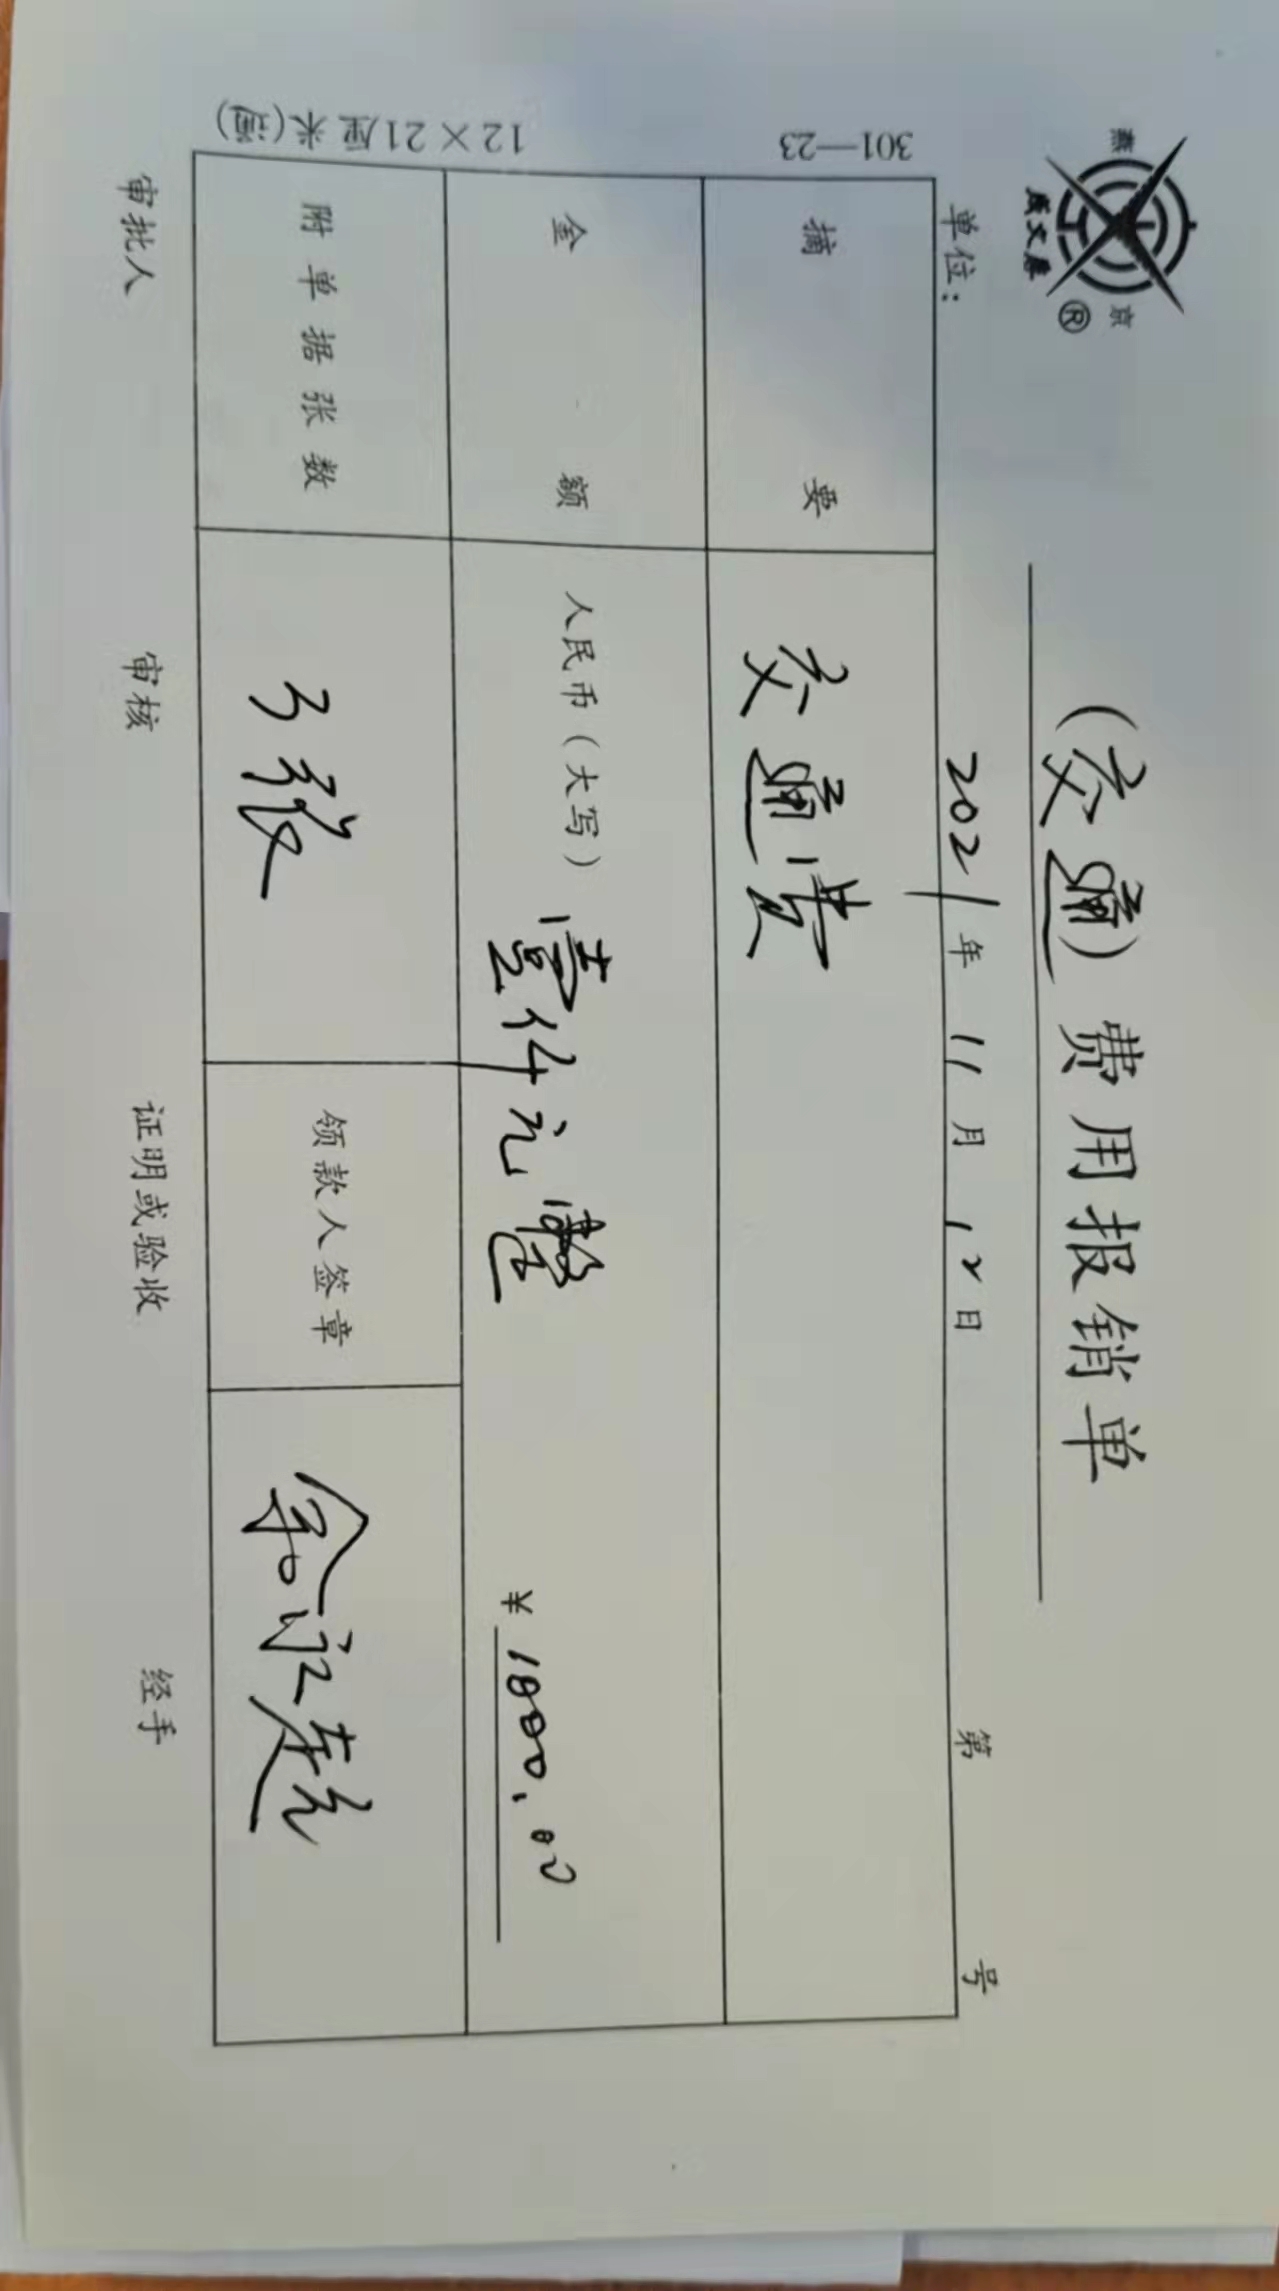 燕 京
成文厚
®
(交通)费用报销单
单位: 2021年11月12日 第 号
摘要 交通费
金额 人民币(大写) 壹仟元整 ¥ 1000.00
附单据张数 3张 领款人签章
审批人 审核 证明或验收 经手
301—23 12×21厘米(通)